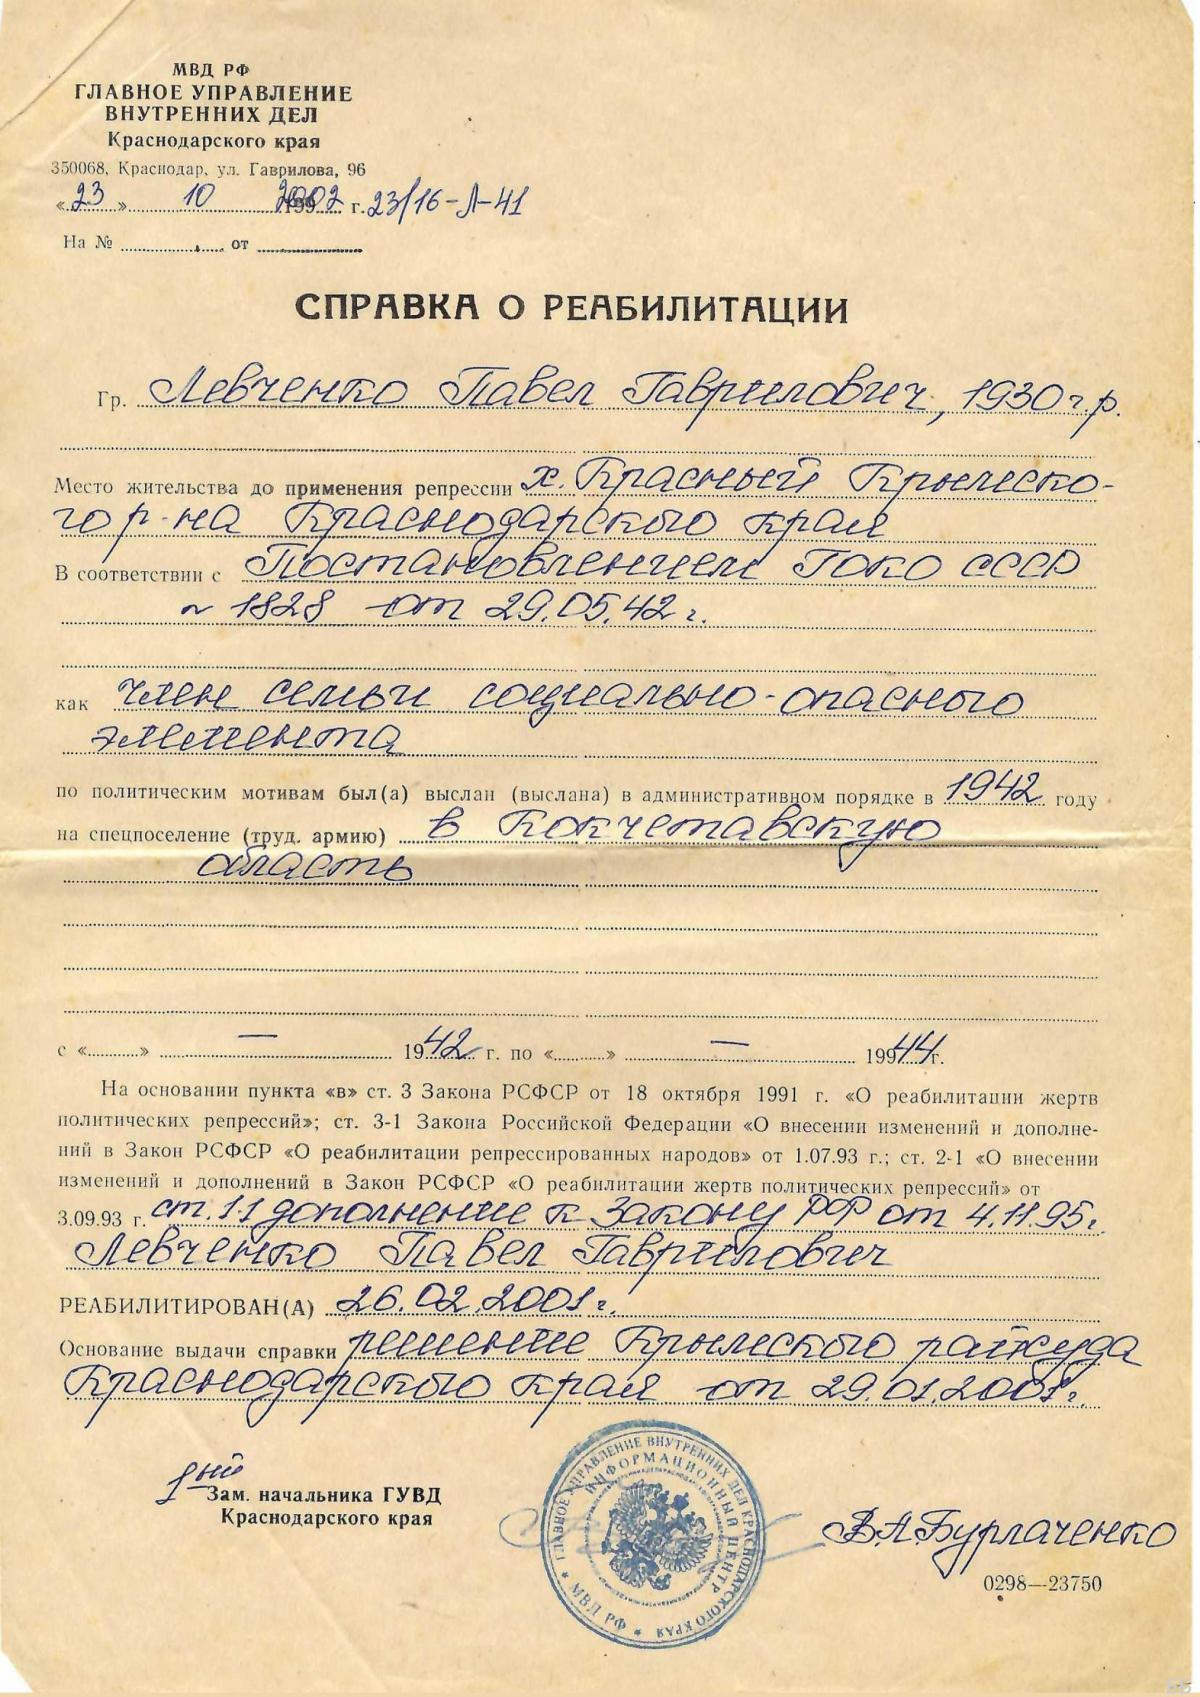 МВД РФ
ГЛАВНОЕ УПРАВЛЕНИЕ
ВНУТРЕННИХ ДЕЛ
Краснодарского края
350068, Краснодар, ул. Гаврилова, 96
«23» 10 2002 г. 23/16-Л-41
На № от
СПРАВКА О РЕАБИЛИТАЦИИ
Гр. Левченко Павел Гаврилович, 1930 г.р.
Место жительства до применения репрессии х. Красный Крымско-
го р-на Краснодарского края
В соответствии с Постановлением ГоКо СССР
№ 1828 от 29.05.42 г.
как член семьи социально-опасного
элемента
по политическим мотивам был(а) выслан (выслана) в административном порядке в 1942 году
на спецпоселение (труд. армию) в Кокчетавскую
область
с «» — 1942 г. по «» — 19944 г.
На основании пункта «в» ст. 3 Закона РСФСР от 18 октября 1991 г. «О реабилитации жертв
политических репрессий»; ст. 3-1 Закона Российской Федерации «О внесении изменений и дополне-
ний в Закон РСФСР «О реабилитации репрессированных народов» от 1.07.93 г.; ст. 2-1 «О внесении
изменений и дополнений в Закон РСФСР «О реабилитации жертв политических репрессий» от
3.09.93 г. ст. 1.1 дополнение к Закону РФ от 4.11.95 г.
Левченко Павел Гаврилович
РЕАБИЛИТИРОВАН(А) 26.02.2001 г.
Основание выдачи справки решение Крымского райсуда
Краснодарского края от 29.01.2001 г.
Зам. начальника ГУВД
Краснодарского края
ГЛАВНОЕ УПРАВЛЕНИЕ ВНУТРЕННИХ ДЕЛ КРАСНОДАРСКОГО КРАЯ * МВД РФ *
ИНФОРМАЦИОННЫЙ ЦЕНТР
В.А.Бурлаченко
0298—23750